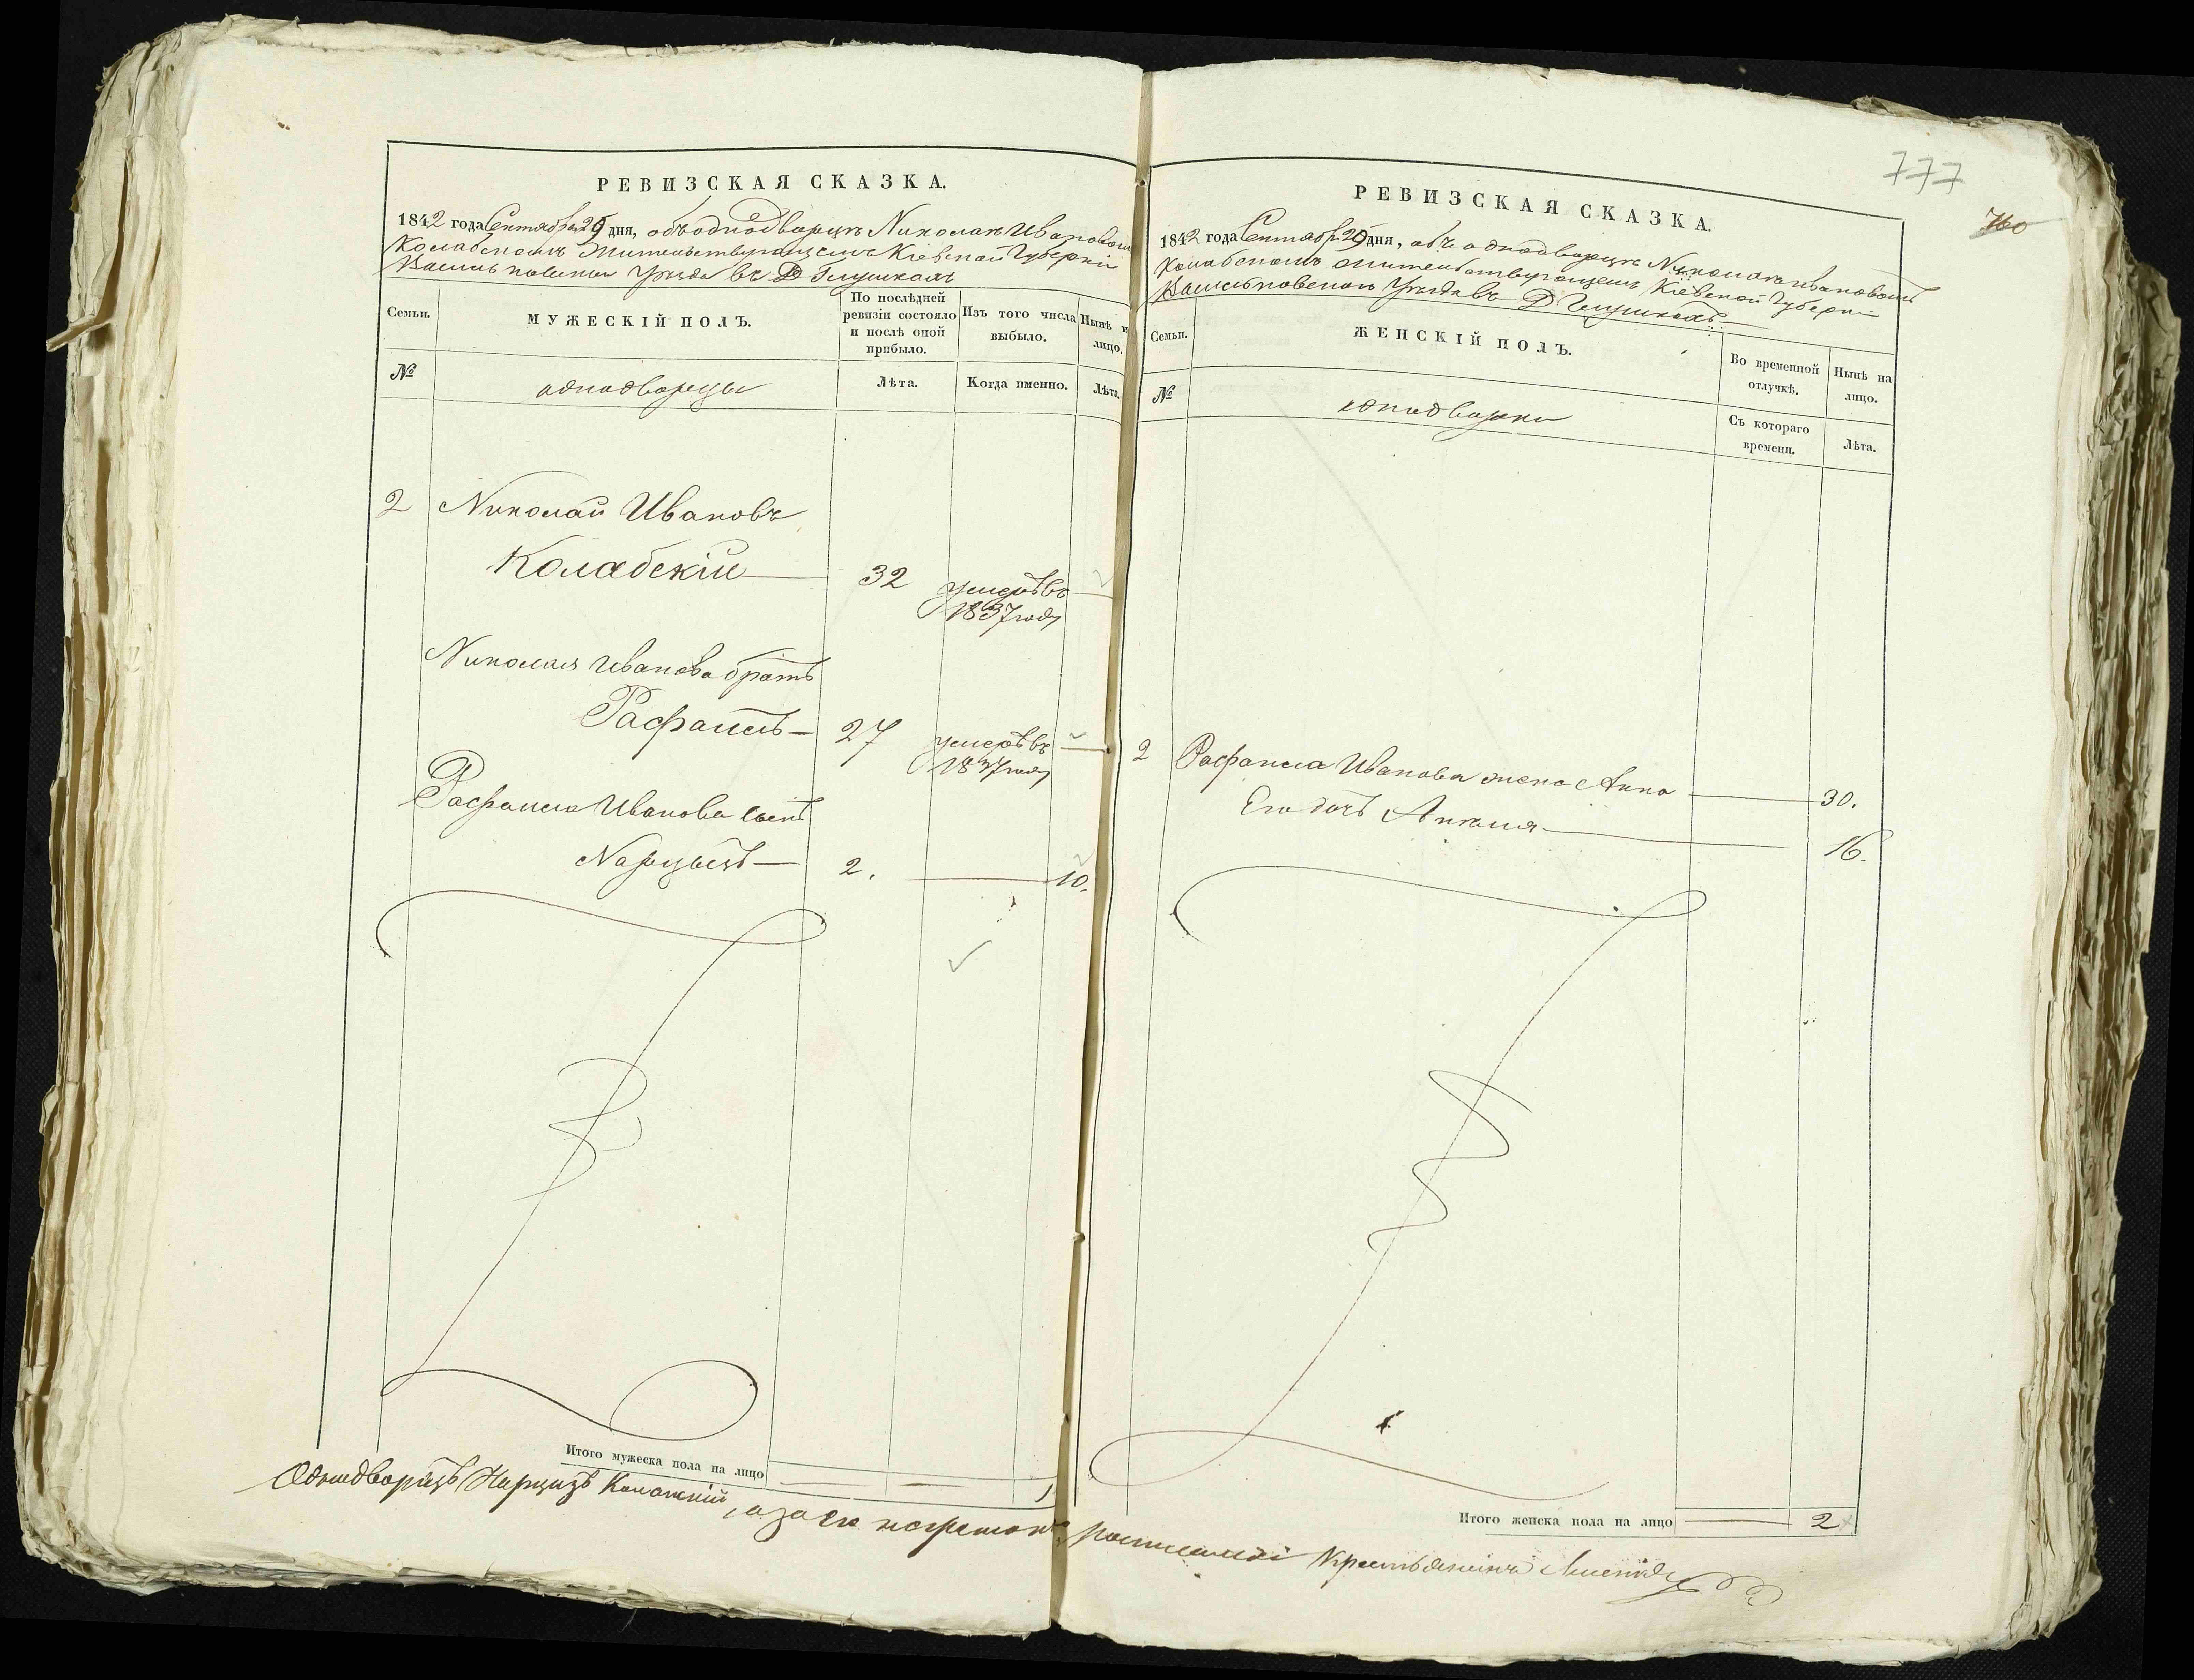 777
760
РЕВИЗСКАЯ СКАЗКА.
1842 года Сентября 29 дня, объ однодворцѣ Николаѣ Ивановомъ
жительствующемъ Кіевской Губерніи
уѣзда въ Д
Семьи.
МУЖЕСКІЙ ПОЛЪ.
По послѣдней ревизіи состояло и послѣ оной прибыло.
Изъ того числа выбыло.
Нынѣ на лицо.
№
однодворцы
Лѣта.
Когда именно.
Лѣта.
2 Николай Ивановъ
Колабскій 32 умеръ въ
1837 году
Николая Иванова братъ
Рафаилъ 27 умеръ въ
1837 году
Рафаила Иванова сынъ
Нарцызъ 2. 10.
Итого мужеска пола на лицо 1
РЕВИЗСКАЯ СКАЗКА.
1842 года Сентября 29 дня, объ однодворцѣ Николаѣ Ивановомъ
жительствующемъ Кіевской Губерніи
Васильковскаго уѣзда въ Д
Семьи.
ЖЕНСКІЙ ПОЛЪ.
Во временной отлучкѣ.
Нынѣ на лицо.
№
однодворки
Съ котораго времени.
Лѣта.
2 Рафаила Иванова жена Анна 30.
Его дочь 16.
Итого женска пола на лицо 2
Однодворецъ Нарцизъ а за его неграмотн